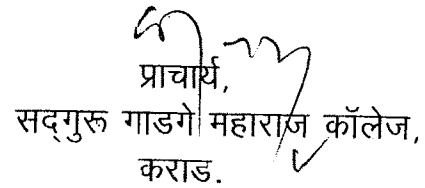 प्राचार्य,
सद्‌गुरू गाडगे महाराज कॉलेज,
कराड.